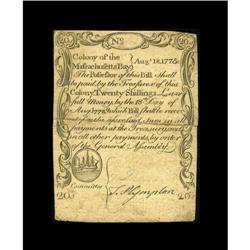 20s No 20s
Colony of the Augt 18.1775
Massachusetts Bay
The Possessor of this Bill Shall
be paid by the Treasurer of this
Colony Twenty Shillings Law
full Money, by the 18 Day of
Augt which Bill shall be
Sum in all
payments at the Treasury and
in all other payments, by order
of the General Assembly
Committee
20s 20s